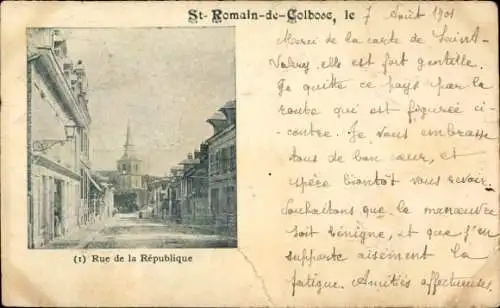 St-Romain-de-Colbosc, le 7 Août 1901
Merci de la carte de Saint-
Valery, elle est fort gentille.
Je quitte ce pays par la
route qui est figurée ci-
contre. Je vous embrasse
tous de bon cœur, et
espère bientôt vous revoir.
Souhaitons que la manœuvre
soit bénigne, et que j'en
supporte aisément la
fatigue. Amitiés affectueuses.
(1) Rue de la République